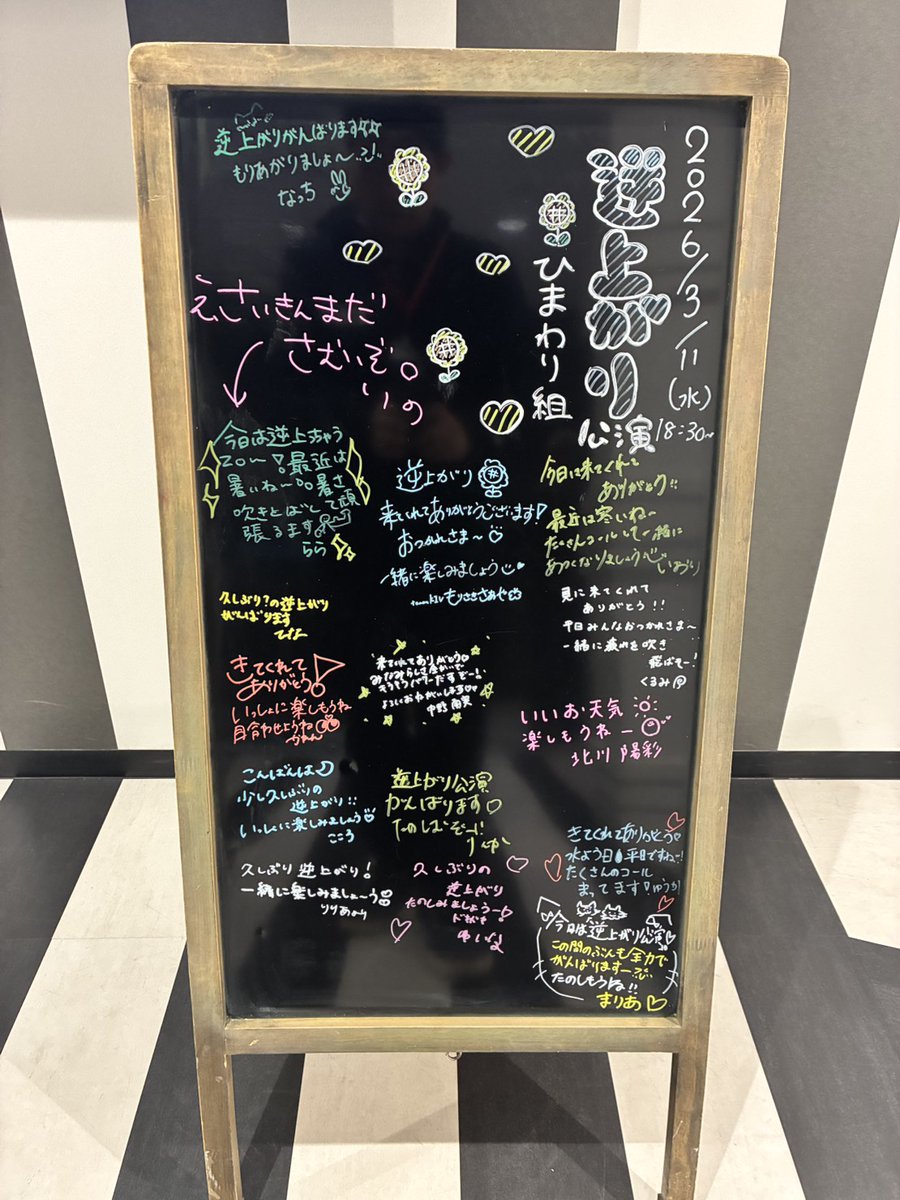 2026/3/11(水)
18:30~
逆上がり
公演
ひまわり組
逆上がりがんばります
もりあがりましょ〜
なっち
えさいきんまだ
さむいぞ。
りの
今日は逆上ちゃう
ZO〜!最近は
暑いね〜。暑さ
吹きとばして頑
張ります
らら
逆上がり
来てくれてありがとうございます!
おつかれさま〜♡
一緒に楽しみましょう
今日は来てくれて
ありがとう!!
最近は寒いね〜
たくさんコールして一緒に
あつくなりましょう
いおり
見に来てくれて
ありがとう!!
平日みんなおつかれさま〜
一緒に疲れを吹き
飛ばそ〜!
くるみ
久しぶり?の逆上がり
がんばります
ひな
きてくれて
ありがとう!
いっしょに楽しもうね
目合わせようね
かれん
来てくれてありがとう♡
よろしくおねがいします
いいお天気
楽しもうねー
北川 陽彩
こんばんは
少し久しぶりの
逆上がり!!
いっしょに楽しみましょう♡
こころ
逆上がり公演
がんばります♡
たのしむぞー!
久しぶり逆上がり!
一緒に楽しみましょ〜う
久しぶりの
逆上がり
たのしみましょうー
きてくれてありがとう♡
水よう日 平日ですね〜!
たくさんのコール
まってます!ゆうか
今日は逆上がり公演
この間のぶんも全力で
がんばりますー
たのしもうね!!
まりあ♡